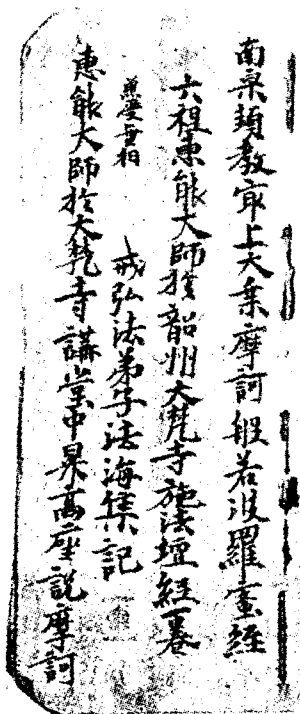 南宗頓教最上大乘摩訶般若波羅蜜經
六祖惠能大師扵韶州大梵寺施法壇經一卷
兼受無相 戒弘法弟子法海集記
惠能大師扵大梵寺講堂中昇高座說摩訶